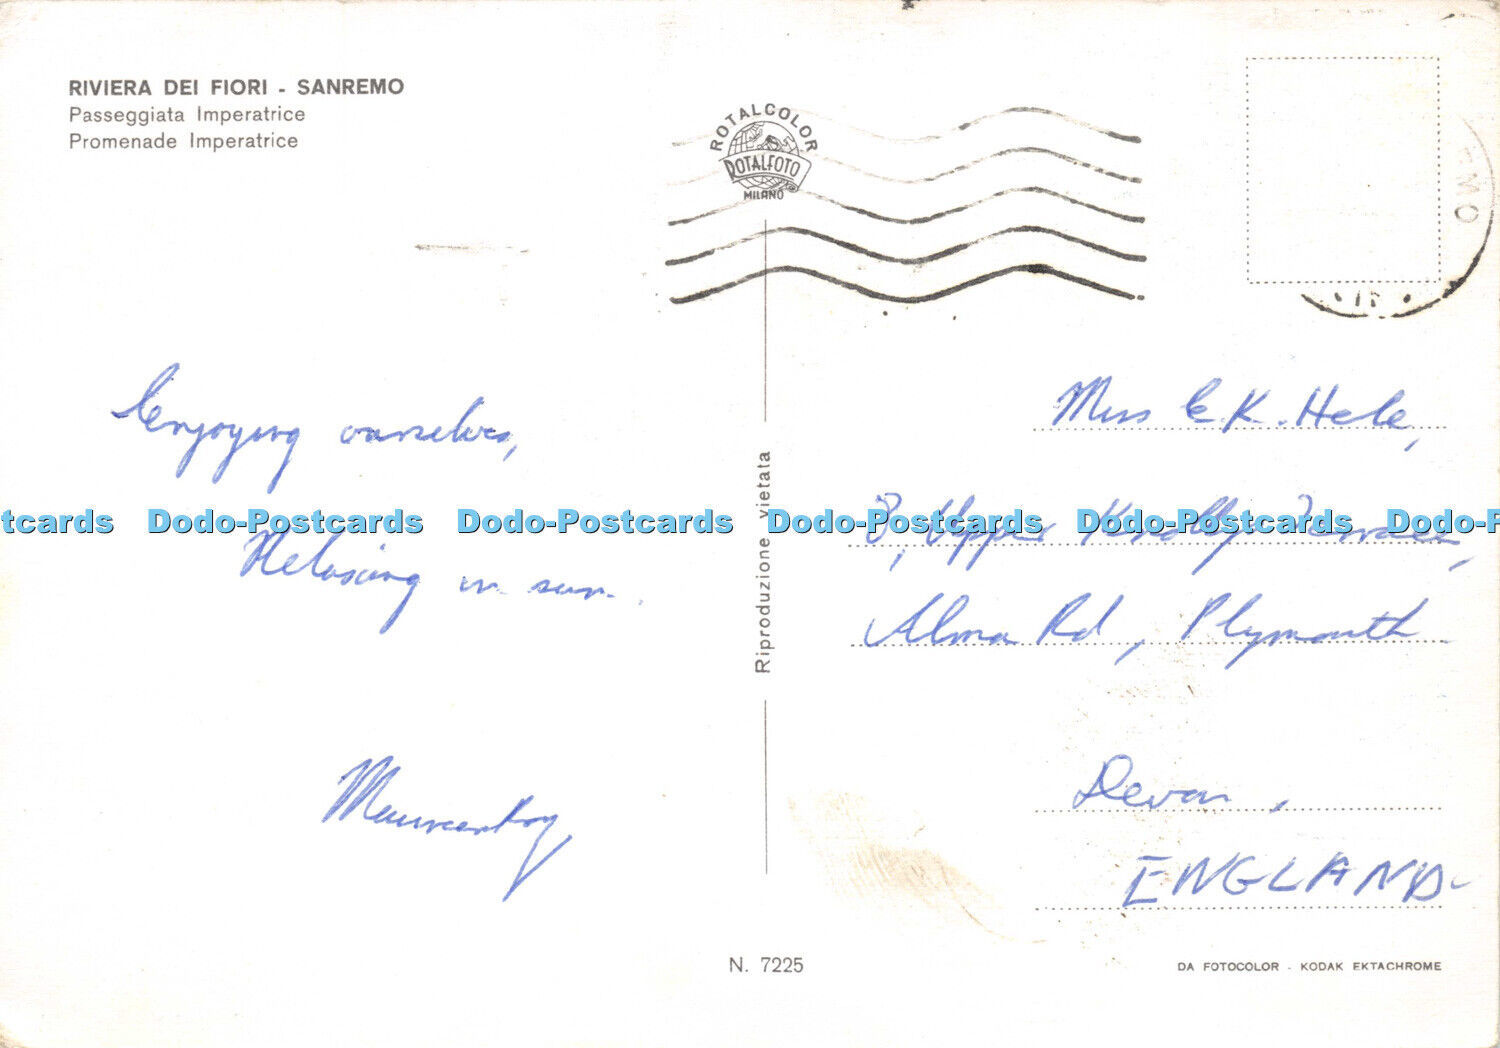 RIVIERA DEI FIORI - SANREMO
Passeggiata Imperatrice
Promenade Imperatrice
ROTALCOLOR
ROTALFOTO
MILANO
EMO
Enjoying ourselves,
Relaxing in sun.
Riproduzione vietata
Miss E.K. Hele,
8, Upper Knolly Terrace,
Alma Rd, Plymouth
Devon,
ENGLAND
N. 7225
DA FOTOCOLOR - KODAK EKTACHROME
tcards Dodo-Postcards Dodo-Postcards Dodo-Postcards Dodo-Postcards Dodo-P